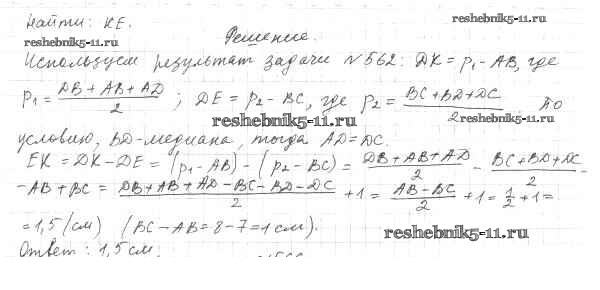 Найти: KE.
reshebnik5-11.ru
reshebnik5-11.ru
Решение.
Используем результат задачи №562: DK = p₁ - AB, где
p₁ = (DB + AB + AD)/2 ; DE = p₂ - BC, где p₂ = (BC + BD + DC)/2. По
reshebnik5-11.ru
условию, BD-медиана, тогда AD=DC.
EK = DK - DE = (p₁ - AB) - (p₂ - BC) = (DB + AB + AD)/2 - (BC + BD + DC)/2 -
- AB + BC = (DB + AB + AD - BC - BD - DC)/2 + 1 = (AB - BC)/2 + 1 = 1/2 + 1 =
= 1,5 (см) (BC - AB = 8 - 7 = 1 см).
reshebnik5-11.ru
Ответ: 1,5 см.